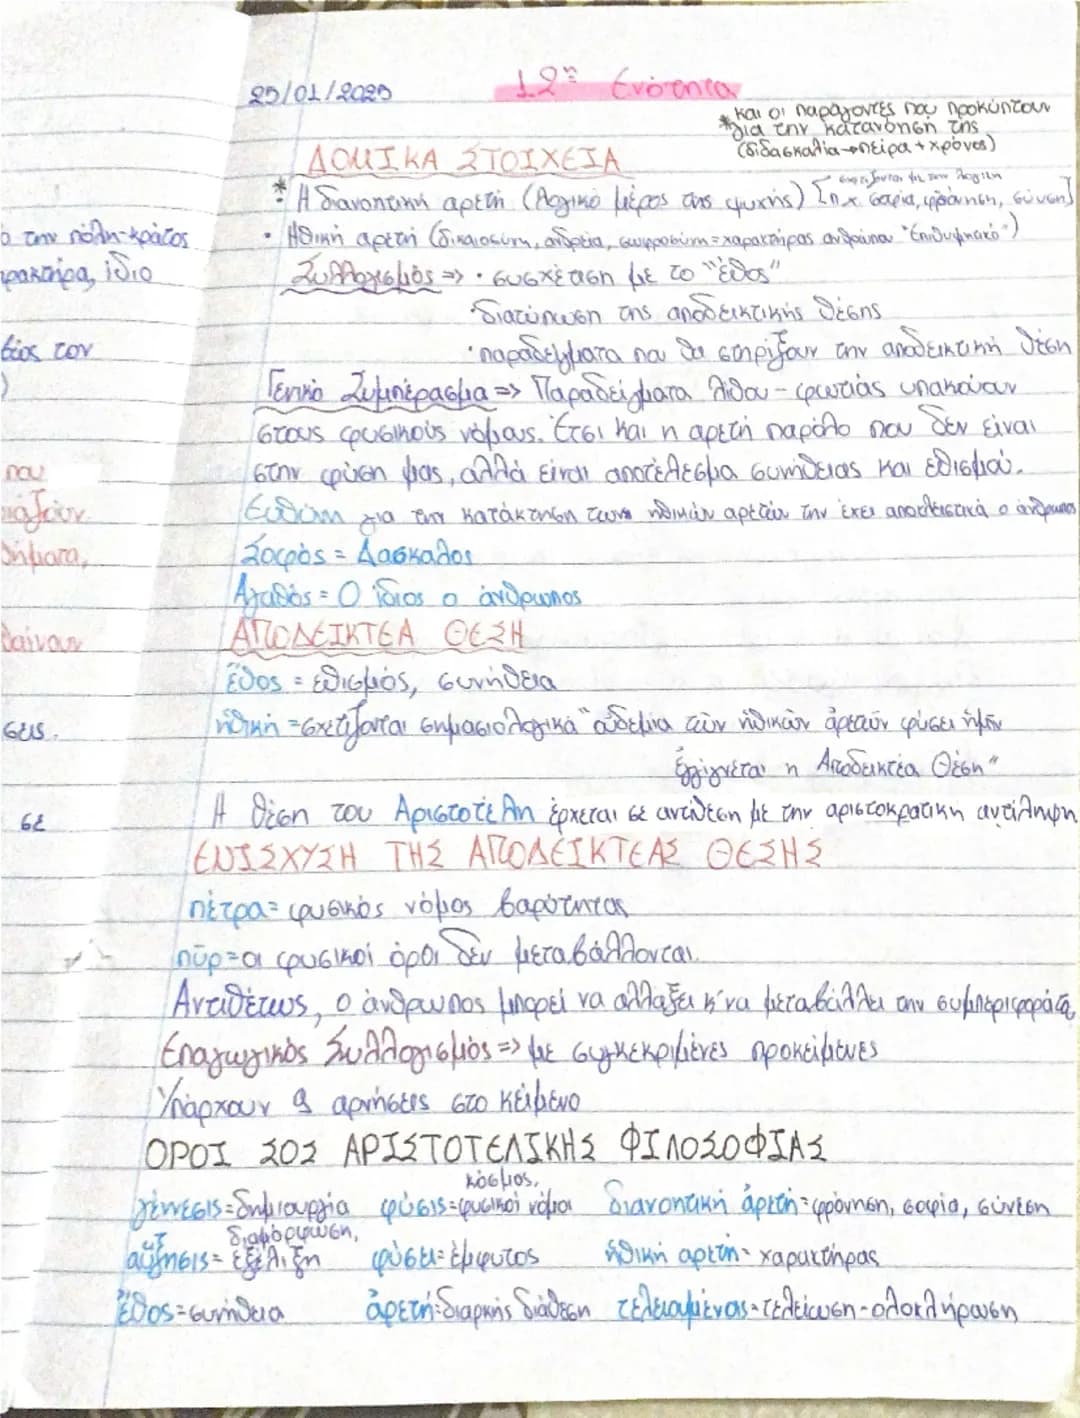 25/01/2025
12η Ενότητα
*και οι παράγοντες που προκύπτουν
για την κατανόηση της
(διδασκαλία→πείρα+χρόνος)
ΔΟΜΙΚΑ ΣΤΟΙΧΕΙΑ
σχετίζονται με την λογική
*• Η διανοητική αρετή (λογικό μέρος της ψυχής) [π.χ σοφία, φρόνηση, σύνεση]
• Ηθική αρετή (δικαιοσύνη, ανδρεία, σωφροσύνη=χαρακτήρας ανθρώπου "επιθυμητικό")
Συλλογισμός => • συσχέτιση με το "ἔθος"
•διατύπωση της αποδεικτικής θέσης
•παραδείγματα που θα στηρίξουν την αποδεικτική θέση
Γενικό Συμπέρασμα => Παραδείγματα λίθου - φωτιάς υπακούουν
στους φυσικούς νόμους. Έτσι και η αρετή παρόλο που δεν είναι
στην φύση μας, αλλά είναι αποτέλεσμα συνήθειας και εθισμού.
Ευθύνη για την κατάκτηση των ηθικών αρετών την έχει αποκλειστικά ο άνθρωπος
Σοφός = Δάσκαλος
Αγαθός = Ο ίδιος ο άνθρωπος
ΑΠΟΔΕΙΚΤΕΑ ΘΕΣΗ
ἔθος = εθισμός, συνήθεια
ἠθική = σχετίζονται σημασιολογικά "οὐδεμία τῶν ἠθικῶν ἀρετῶν φύσει ἡμῖν
ἐγγίγνεται η Αποδεικτέα Θέση"
Η θέση του Αριστοτέλη έρχεται σε αντίθεση με την αριστοκρατική αντίληψη
ΕΝΙΣΧΥΣΗ ΤΗΣ ΑΠΟΔΕΙΚΤΕΑΣ ΘΕΣΗΣ
πέτρα= φυσικός νόμος βαρύτητας
πῦρ=οι φυσικοί όροι δεν μεταβάλλονται
Αντιθέτως, ο άνθρωπος μπορεί να αλλάξει κ' να μεταβάλλει την συμπεριφορά του
Επαγωγικός Συλλογισμός => με συγκεκριμένες προκείμενες
Υπάρχουν 9 αρνήσεις στο κείμενο
ΟΡΟΙ ΣΟΣ ΑΡΙΣΤΟΤΕΛΙΚΗΣ ΦΙΛΟΣΟΦΙΑΣ
κόσμος,
γένεσις=δημιουργία φύσις=φυσικοί νόμοι διανοητική ἀρετή=φρόνηση, σοφία, σύνεση
διαμόρφωση,
αὔξησις= εξέλιξη φύσει= έμφυτος ἠθική αρετή= χαρακτήρας
ἔθος=συνήθεια ἀρετή=διαρκής διάθεση τελειουμένοις=τελείωση-ολοκλήρωση
ο την πόλη-κράτος
ίδιο
τον
που
σεις.
σε